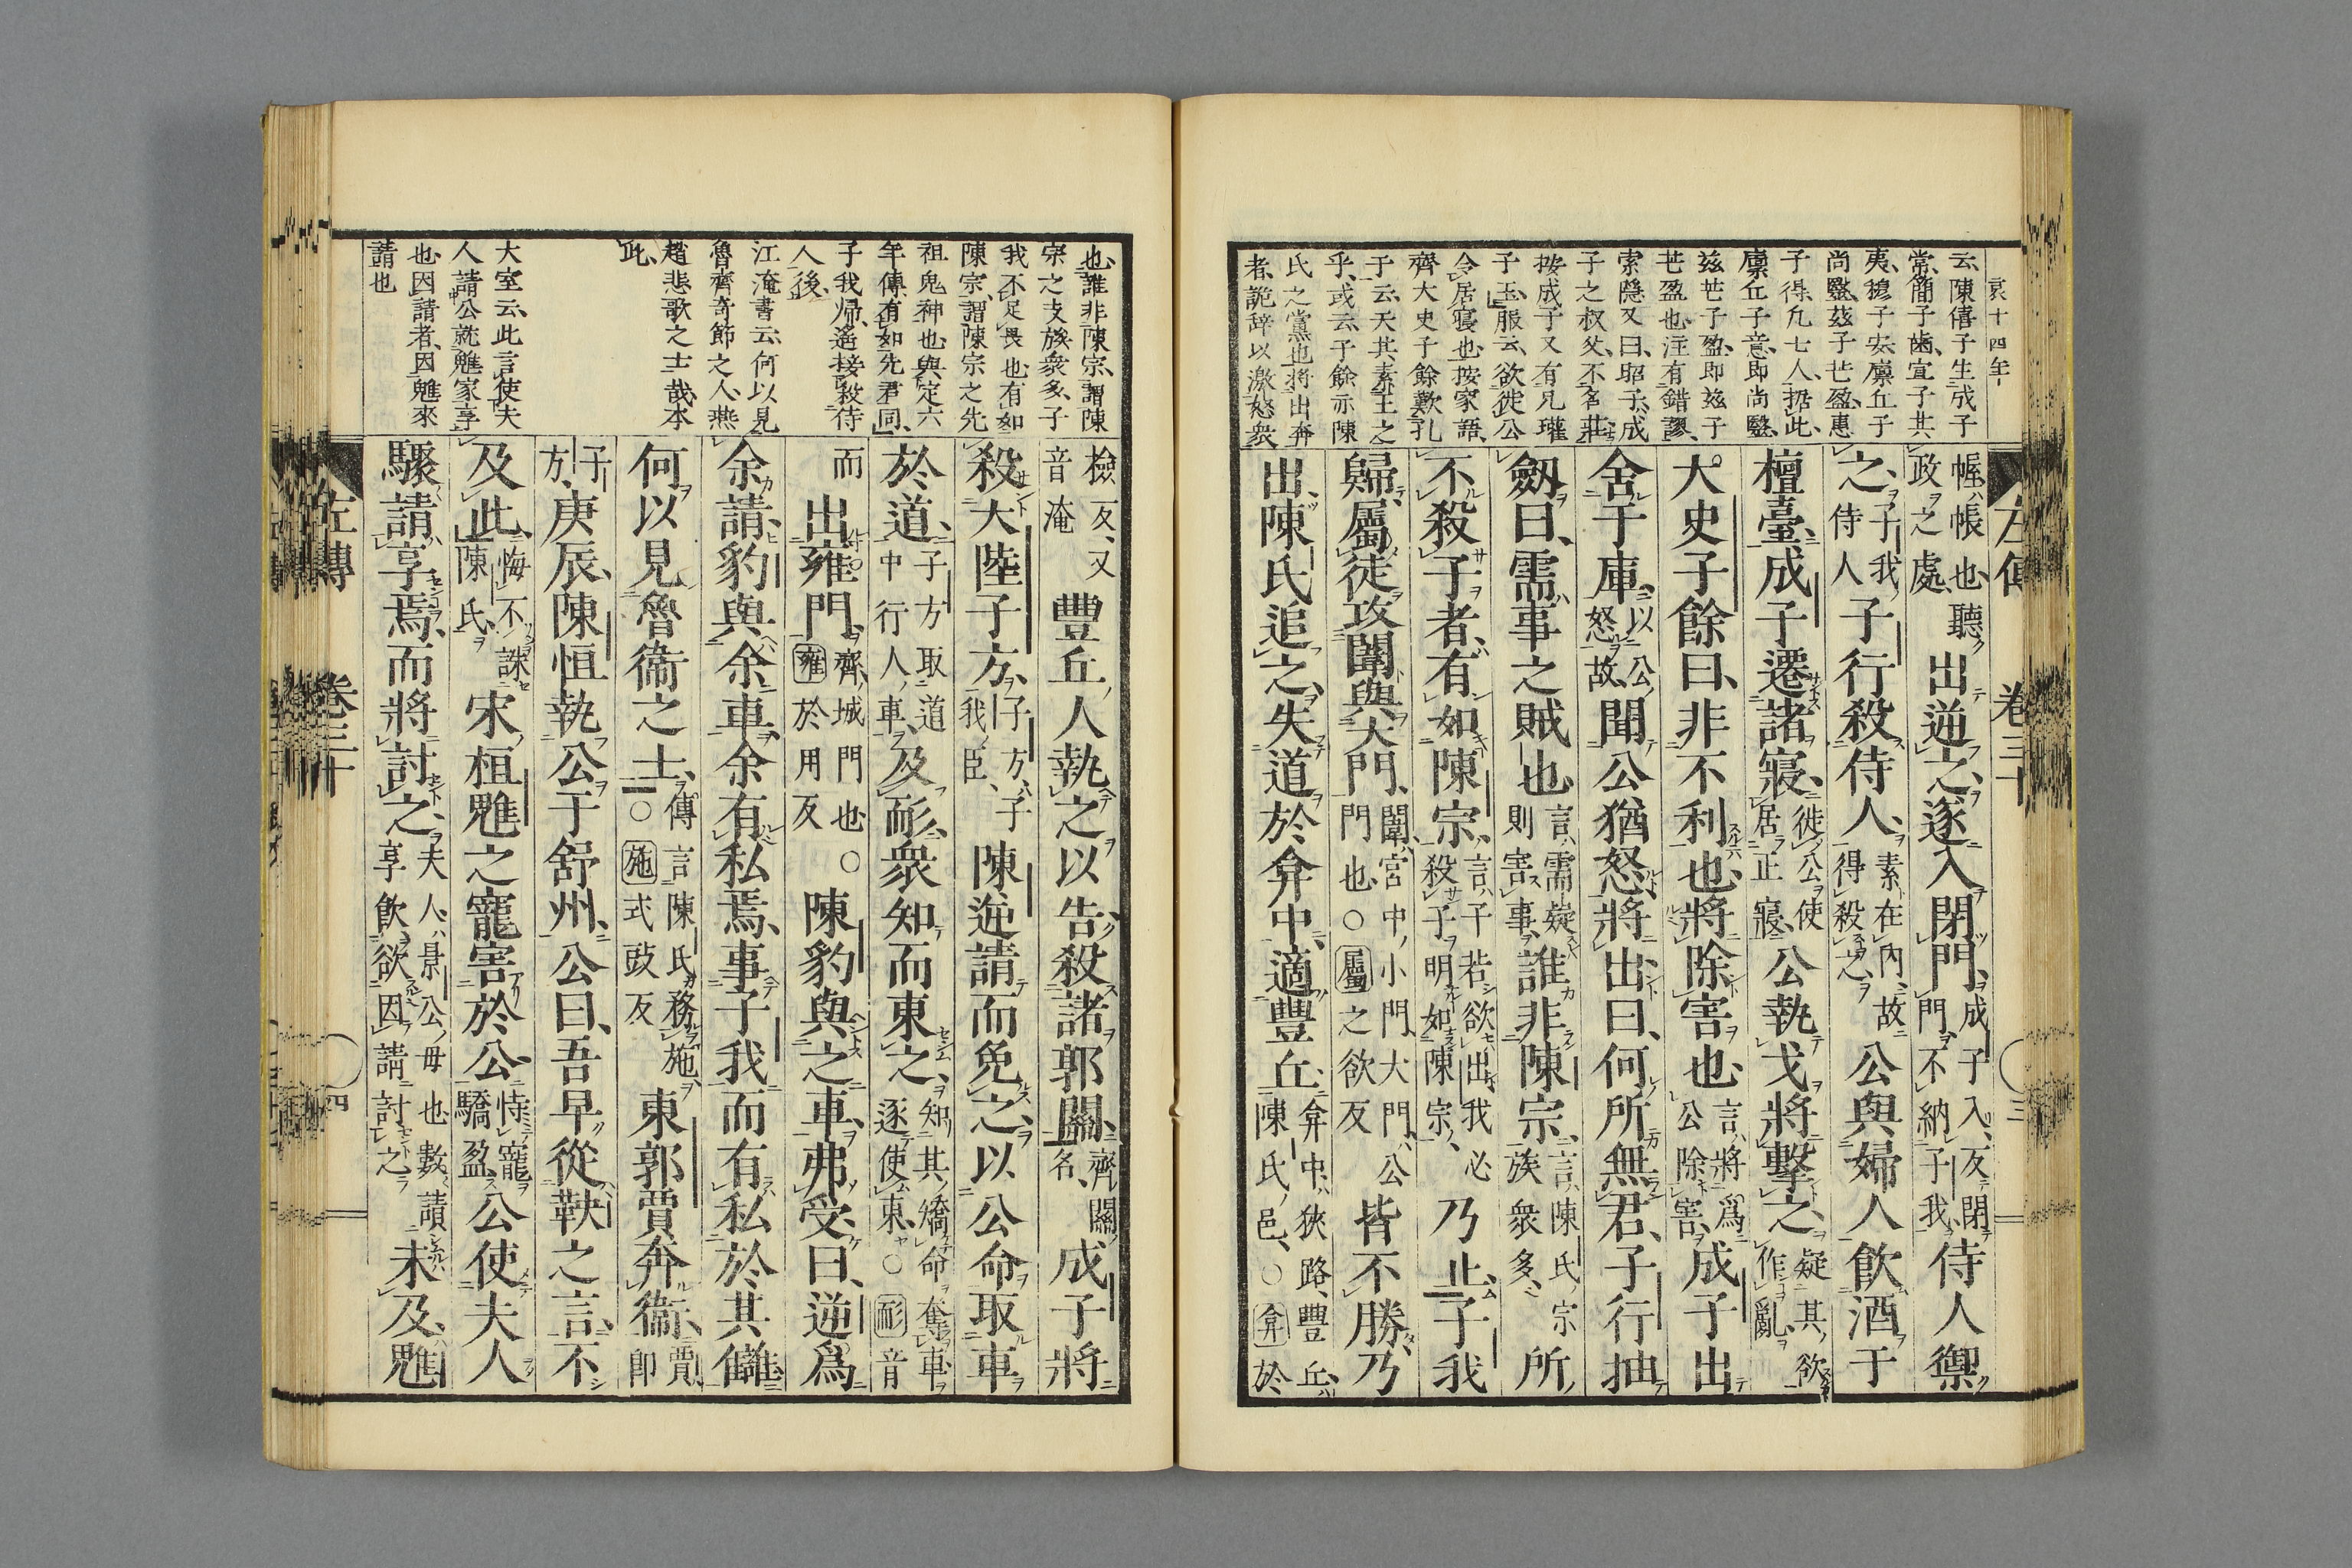 哀十四年
云陳僖子生成子
常簡子齒宣子其
夷穆子安廩丘子
尚毉茲子芒盈惠
子得凢七人㨿此
廩丘子意即尚毉
茲芒子盈即茲子
芒盈也注有錯謬
索隱又曰昭子成
子之叔父不名莊
按成子又有兄瓘
子玉服云欲徙公
令居寢也按家語
齊大史子餘歎孔
子云天其素王之
乎或云子餘亦陳
氏之黨也將出奔
者詭辞以激怒衆
左傳 卷三十 三
幄帳也聽政之處出逆之遂入閉門成子入反閉門不納子我侍人禦
之子我侍人子行殺侍人素在內故得殺之公與婦人飮酒于
檀臺成子遷諸寢徙公使居正寢公執戈將擊之疑其欲作亂
大史子餘曰非不利也將除害也言將爲公除害成子出
舍于庫以公怒故聞公猶怒將出曰何所無君子行抽
劔曰需事之賊也言需疑則害事誰非陳宗言陳氏宗族衆多所
不殺子者有如陳宗言子若欲出我必殺子明如陳宗乃止子我
歸屬徒攻闈與大門闈宮中小門大門公門也○屬之欲反皆不勝乃
出陳氏追之失道於弇中適豐丘弇中狹路豐丘陳氏邑○弇於
也誰非陳宗謂陳
宗之支族衆多子
我不足畏也有如
陳宗謂陳宗之先
祖鬼神也與定六
年傳有如先君同
子我帰遙接殺侍
人後
江淹書云何以見
魯齊奇節之人燕
趙悲歌之士哉本
此
大室云此言使夫
人請公就魋家享
也因請者因魋來
請也
檢反又音淹豐丘人執之以告殺諸郭關齊關名成子將
殺大陸子方子方子我臣陳逆請而免之以公命取車
於道子方取道中行人車及耏衆知而東之知其矯命奪車逐使東○耏音
而出雍門齊城門也○雍於用反陳豹與之車弗受曰逆爲
余請豹與余車余有私焉事子我而有私於其讎
何以見魯衞之士傳言陳氏務施○施式豉反東郭賈奔衞賈即
子方庚辰陳恒執公于舒州公曰吾早從鞅之言不
及此悔不誅陳氏宋桓魋之寵害於公恃寵驕盈公使夫人
驟請享焉而將討之夫人景公母也數請享飮欲因請討之未及魋
左傳 卷三十 四